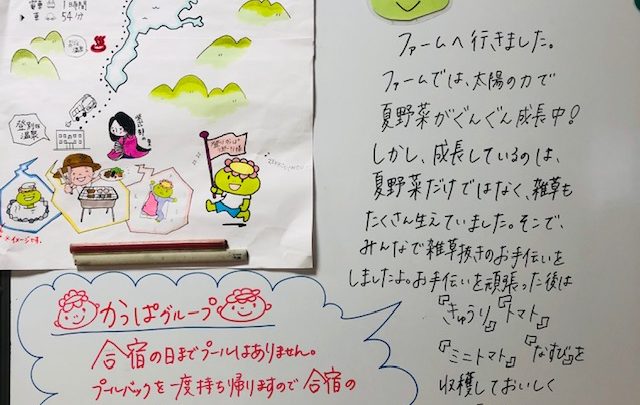 電車 1時間
車 54分
登別の温泉
ファームへ行きました。
ファームでは、太陽の力で
夏野菜がぐんぐん成長中!
しかし、成長しているのは、
夏野菜だけではなく、雑草も
たくさん生えていました。そこで、
みんなで雑草抜きのお手伝いを
しましたよ。お手伝いを頑張った後は
『きゅうり』『トマト』
『ミニトマト』『なすび』を
収穫しておいしく
※イメージです。
かっぱグループ
合宿の日までプールはありません。
プールバックを一度持ち帰りますので合宿の